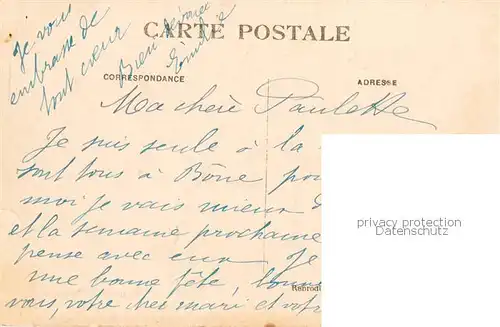 Je vous
embrasse de
tout cœur
Bien
Emilie
CARTE POSTALE
CORRESPONDANCE
ADRESSE
Ma chère Paulette
Je suis seule à la
sont tous à Bône pou
moi je vais mieux
et la semaine prochaine
pense avec eux Je
une bonne fête,
vous, votre cher mari et votr
Reprod
privacy protection
Datenschutz